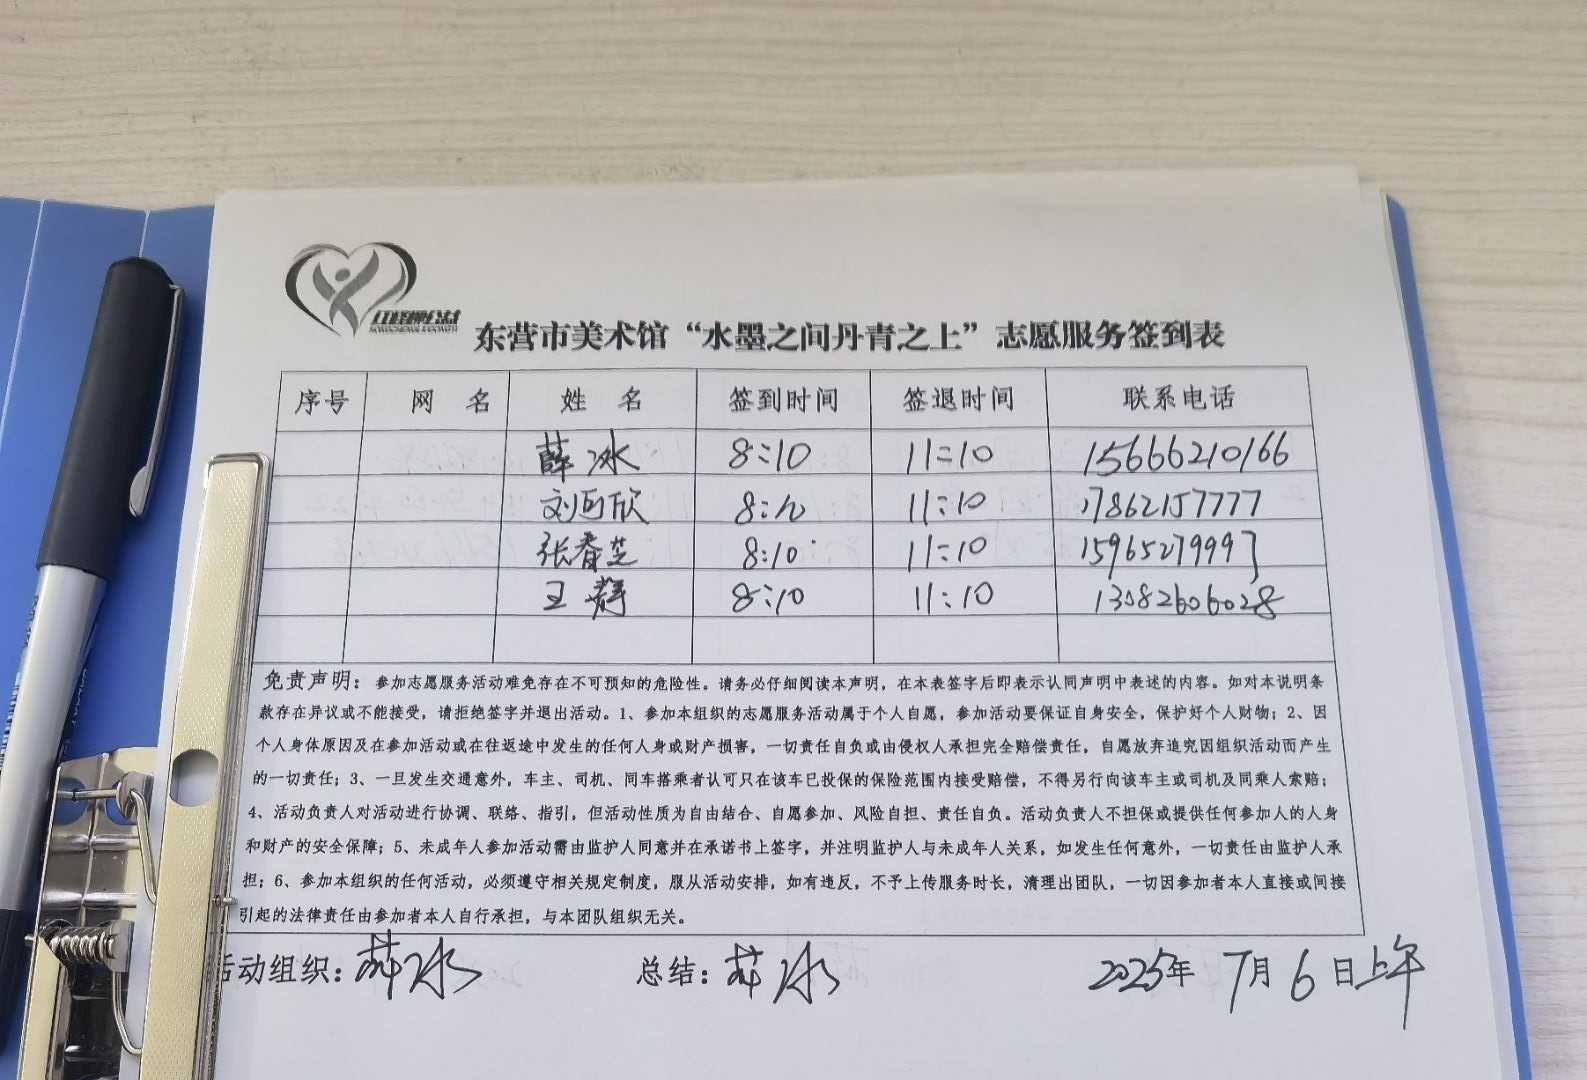 东营市美术馆“水墨之间丹青之上”志愿服务签到表
序号 网 名 姓 名 签到时间 签退时间 联系电话
薛冰 8:10 11:10 15666210166
刘可欣 8:10 11:10 17862157777
张春芝 8:10 11:10 15965279997
王静 8:10 11:10 13082606028
免责声明：参加志愿服务活动难免存在不可预知的危险性。请务必仔细阅读本声明，在本表签字后即表示认同声明中表述的内容。如对本说明条
款存在异议或不能接受，请拒绝签字并退出活动。1、参加本组织的志愿服务活动属于个人自愿，参加活动要保证自身安全，保护好个人财物；2、因
个人身体原因及在参加活动或在往返途中发生的任何人身或财产损害，一切责任自负或由侵权人承担完全赔偿责任，自愿放弃追究因组织活动而产生
的一切责任；3、一旦发生交通意外，车主、司机、同车搭乘者认可只在该车已投保的保险范围内接受赔偿，不得另行向该车主或司机及同乘人索赔；
4、活动负责人对活动进行协调、联络、指引，但活动性质为自由结合、自愿参加、风险自担、责任自负。活动负责人不担保或提供任何参加人的人身
和财产的安全保障；5、未成年人参加活动需由监护人同意并在承诺书上签字，并注明监护人与未成年人关系，如发生任何意外，一切责任由监护人承
担；6、参加本组织的任何活动，必须遵守相关规定制度，服从活动安排，如有违反，不予上传服务时长，清理出团队，一切因参加者本人直接或间接
引起的法律责任由参加者本人自行承担，与本团队组织无关。
活动组织：薛冰 总结：薛冰 2025年 7月 6日上午